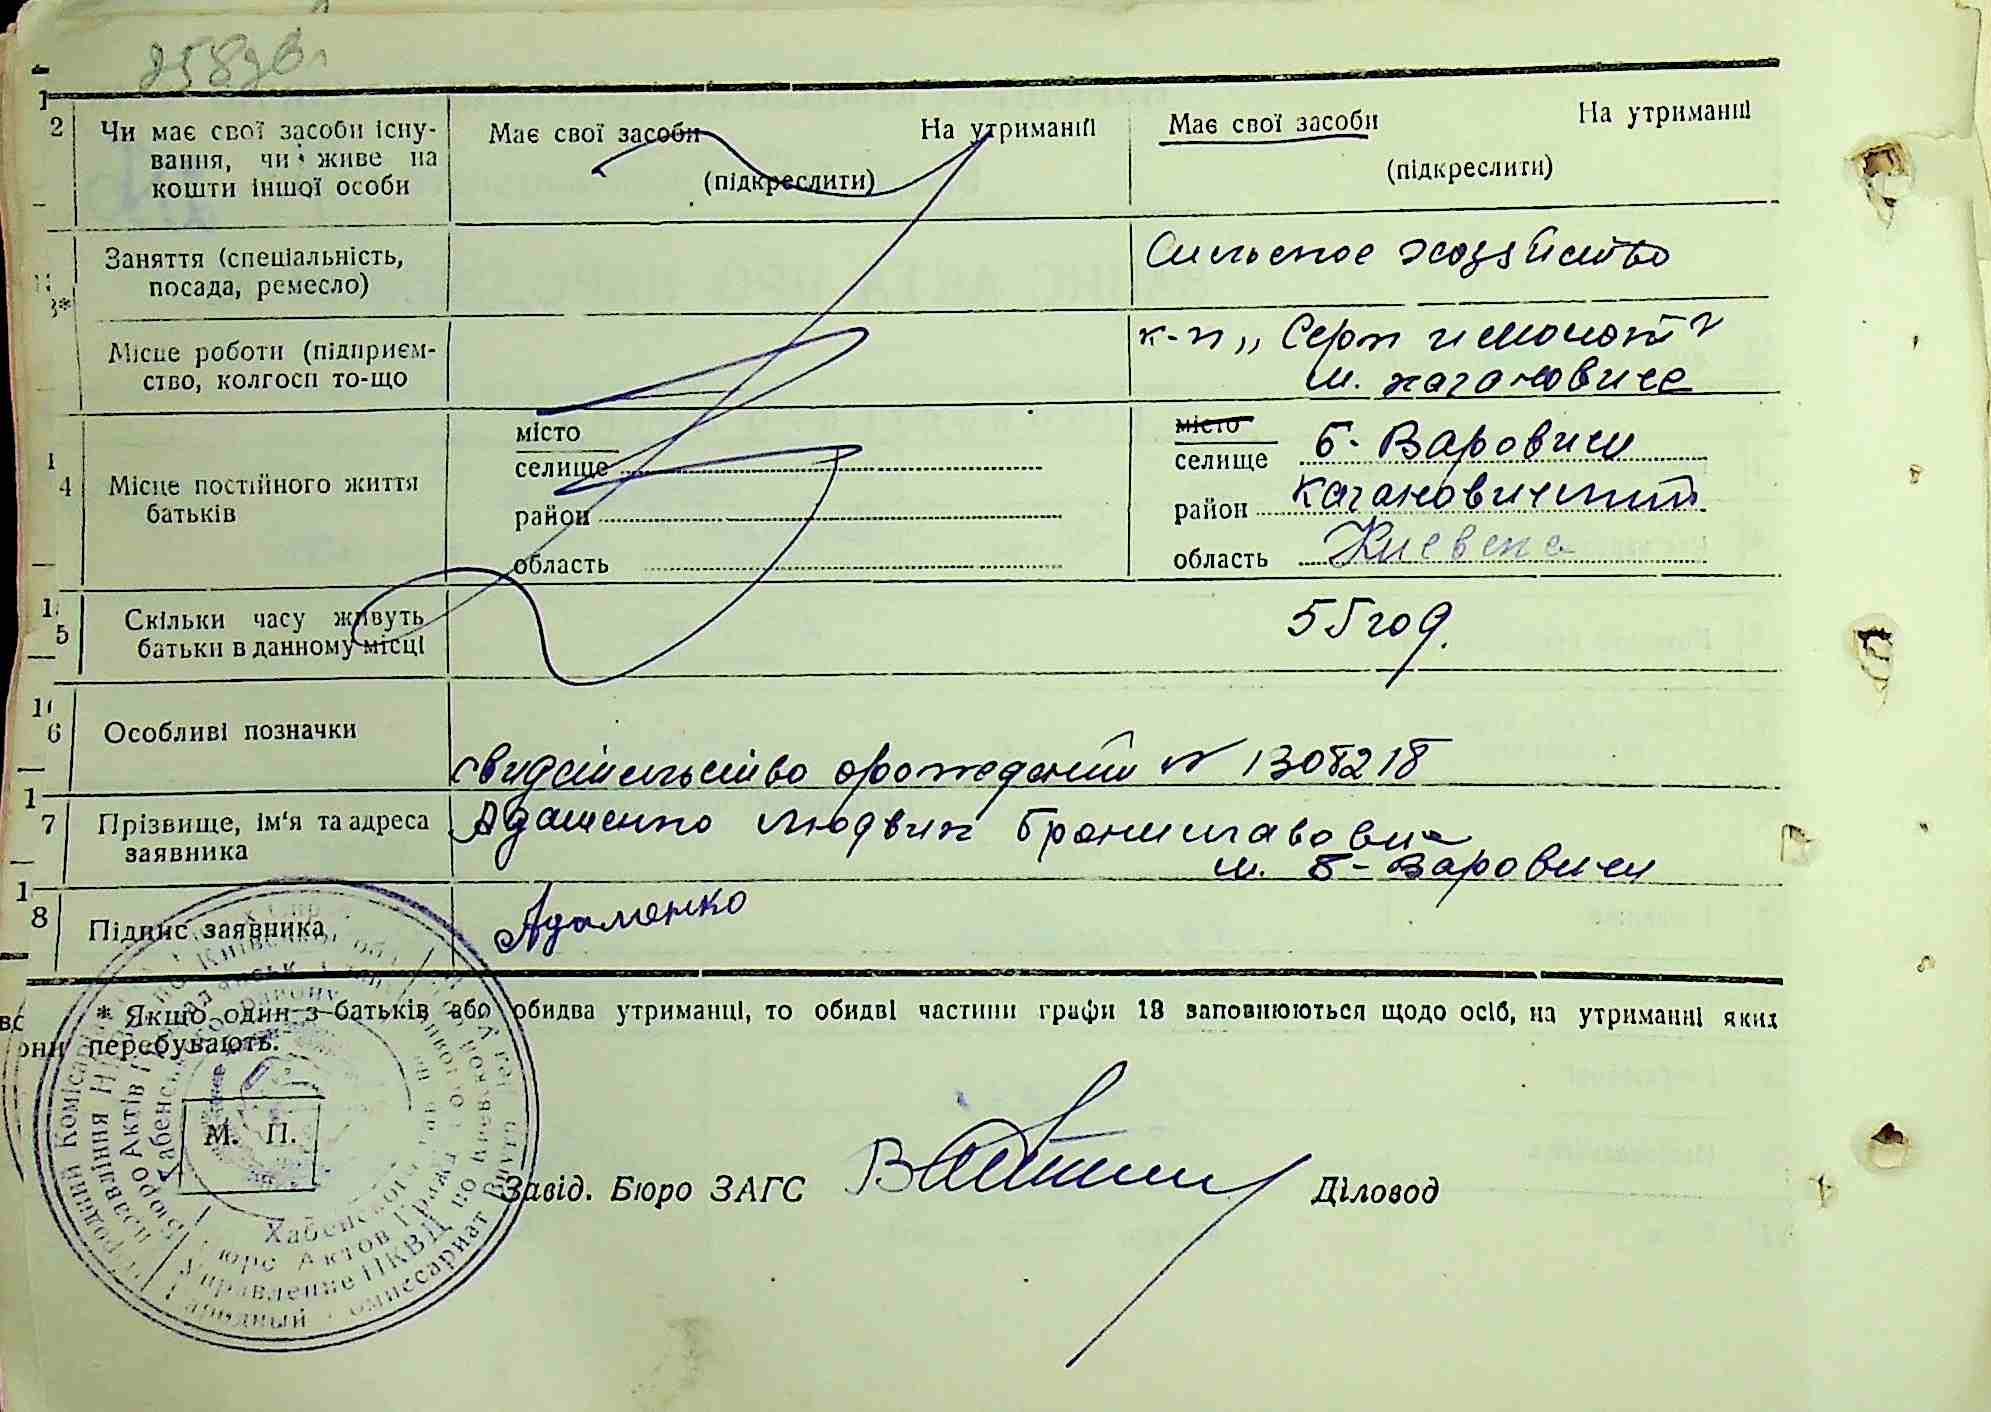 2 Чи має свої засоби існу-
вання, чи живе на
кошти іншої особи
Має свої засоби На утриманні
(підкреслити)
Має свої засоби На утриманні
(підкреслити)
3* Заняття (спеціальність,
посада, ремесло)
Сильское хозяйство
Місце роботи (підприєм-
ство, колгосп то-що
к-п „Серп и молот"
м. кагановиче
14 Місце постійного життя
батьків
місто
селище
район
область
місто
селище Б-Варовичи
район Кагановичский
область Киевска
15 Скільки часу живуть
батьки в данному місці
55 год.
16 Особливі позначки
свидетельство орождении N 1308218
17 Прізвище, ім'я та адреса
заявника
Адаменко Людвик Брониславович
м. Б-Варовичи
18 Підпис заявника
Адаменко
* Якщо один з батьків або обидва утриманці, то обидві частини графи 13 заповнюються щодо осіб, на утриманні яких
вони перебувають.
М. П.
Завід. Бюро ЗАГС Діловод
Хабенского
Бюро Актов Гражд
Управление НКВД по Киевской обл
Народный Комиссариат Внутр